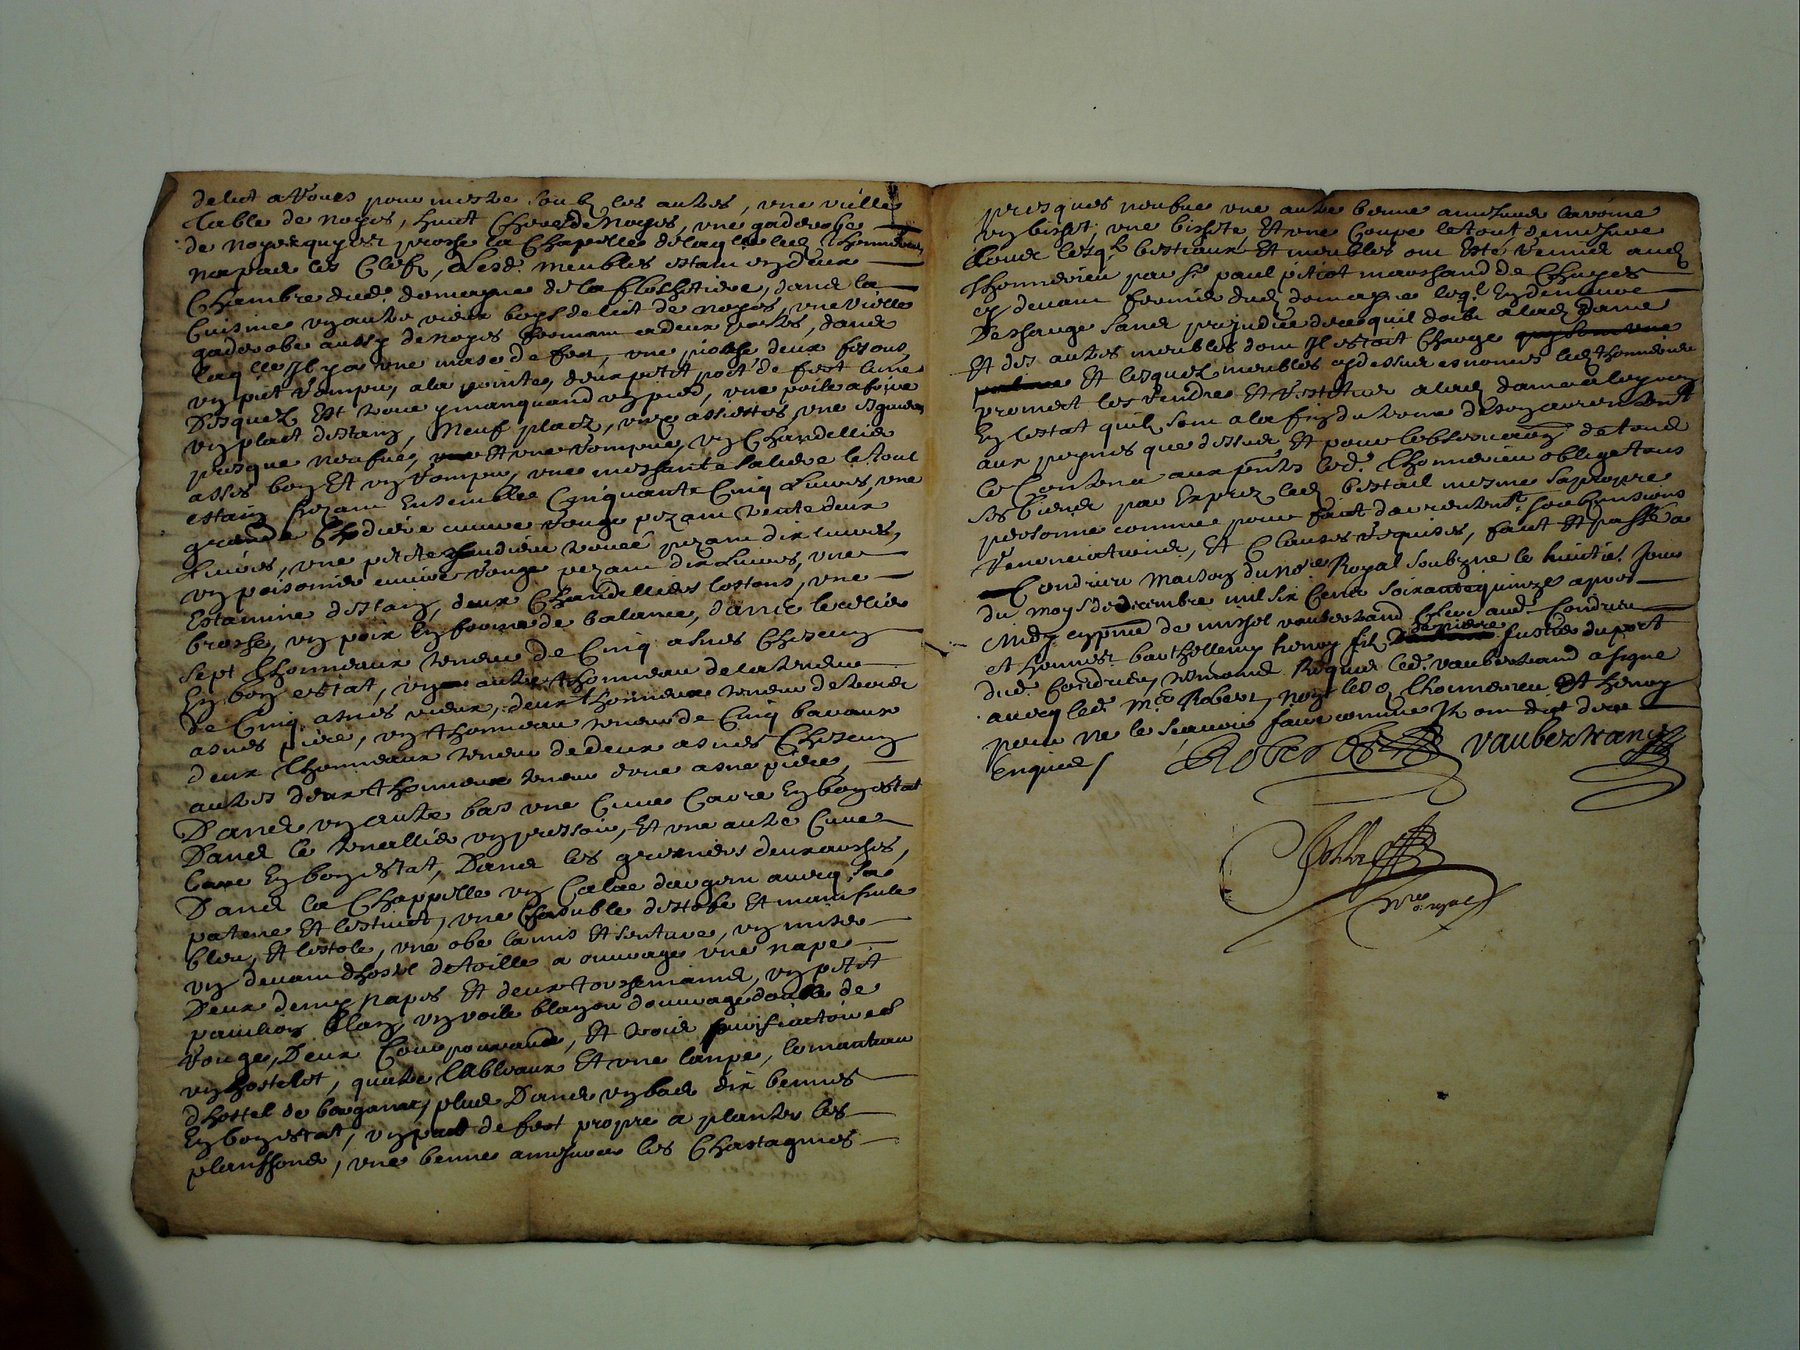 de lict a tours pour mestre soubz les autres, une vielle
table de noyer, huict cheres de noyer, une gaderobe
de noyer qui est proche la chapelle de laqlle led Thonnerieu
na pas les clefs, lesd. meubles estant en deux
chambres dud. domayne de la flochetiere, dans la
cuisine un autre vieux boys de lict de noyer, une vielle
gaderobe aussy de noyer fermant a deux portes, dans
laqlle il y a une mase de fer, une pioche, deux
un pic rompu, a la pointe, deux petit pot de fert l'une
desquelz est roue y manquand un pied, une poile a frire
un plact destain, neuf platz, assiettes, une esguiere
presque neufve, et une rompue, un chandellier
asses bon et un rompu, une meschante saliere le tout
estain pezant ensemble cinquante cinq livres, une
grande chodiere cuivre rouge pezant trente deux
livres, une petite chaudiere pezant dix livres,
un poisonier cuivre rouge pezant dix livres, une
estamine destain, deux chandelliers lottons, une
broche, un poix en forme de balance, dans le celier
sept thonneaux teneur de cinq asnes chescun
en bon estat, un autre thonneau de la teneur
de cinq asnes vieux, deux thonneaux teneur de
asnes piece, un thonneau teneur de cinq baraux
deux thonneaux teneur de deux asnes chescun
autres deux thonneaux teneur dune asne piece,
Dans un autre bas une cuve cavre en bon estat
Dans le tenallier un pressoir, et une autre cuve
cavre en bon estat, Dans les greniers deux arches,
Dans la chappelle un calice dargen avecq sa
patene et lestuict, une chasuble destofe et manifule
bleu, et lestole, une obe lamis et sinture, un misel
un devant dhostel de toille a ouvrage une nape
Deux demy napes et deux tourshemains, un petit
pavilion blan, un voile blan ouvrage double de
rouge, Deux et trois purificatoires
un hostelet, quatre tableaux et une lanpe, le manteau
dhostel de bougaran, plus Dans un bas dix bennes
en bon estat, un pal de fert propre a planter les
planssons, une benne a mesurer les chastagnes
presques neufve une autre benne a mesurer lavoine
un bichet, une bichete et une coupe le tout de mesure
lesqls bestiaux et meubles ont esté remis aud
Thonnerieu par sr paul piciot marchand de Chuyes
cy devant fermier dud domayne leql en demeure
Deschange sans prejudice de ce quil doibt a lad dame
Et des autres meubles dont il estoit charge
Et lesquelz meubles cy dessus enoncés led Thonnerieu
promect les rendre et restituer a lad dame
en lestat quilz sont a la fin du terme de son
aux peynes que dessus et pour lobservaon de tout
le contenu aux pntes led. Thonnerieu oblige tous
ses biens par exprez led bestail mesme sa propre
personne comme pour faict soubmissions
renonciations, et clauses requises, faict et passé a
Condrieu maison du nore Royal soubzne le huictie. jour
du moys de decembre mil six cens soixante quinze apres
midy en pnce de michel vaubertrand aud. Condrieu
et honnest barthellemy henry fils fustier du port
dud. Condrieu, tesmoins Requis led. vaubertrand a signe
avecq led. mre Robert, non led. Thonnerieu et henry
pour ne le scavoir faire comme ilz ont dict de ce
enquis /
Robert vaubertrand
nore royal